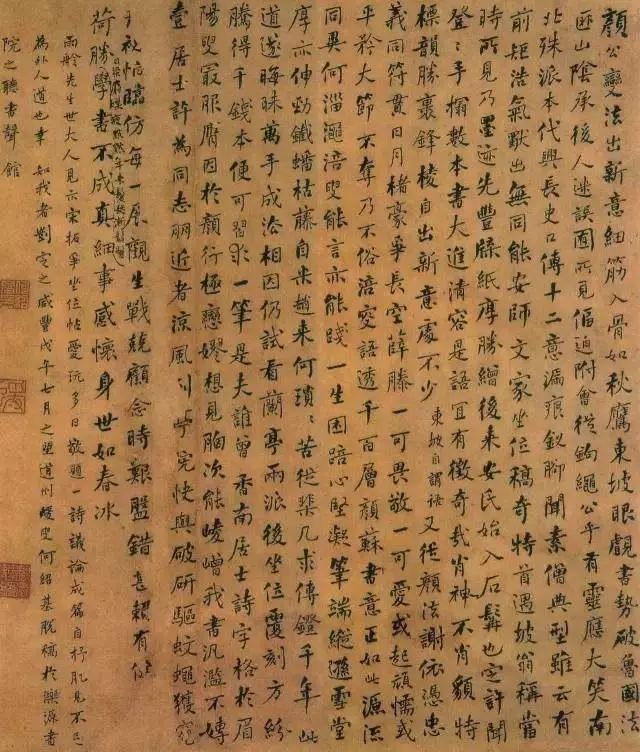 顏公變法出新意細筋入骨如秋鷹東坡眼覷書勢破魯國法
匪山陰承後人迷誤圄所見傴迫附會從繩公乎有靈應大笑南
北殊派本代興長史口傳十二意漏痕釵腳聞素僧典型雖云有
前矩浩氣默出無同能安師文家坐位稿奇特首遇坡翁稱當
時所見乃墨迹先豐牋紙摩勝繒後來安民始入石髯也定許聞
登登手搨數本書大進清容是語宜有徵奇哉肖神不肖貌特
標韻勝裹鋒稜自出新意處不少東坡自謂語又從顏法謝依憑忠
義同符貫日月楮豪爭長空薛滕一可畏敬一可愛或起頑懦或
平矜大節不奪乃不俗涪叟語透千百層顏蘇書意正如此源流
同異何淄澠涪叟能言亦能踐一生困踣心堅凝筆端縱遜雪堂
厚亦伸勁鐵蟠枯藤自米趙來何瑣瑣苦從棐几求傳鐙千年此
道遂晦昧萬手成沿相因仍試看蘭亭兩派後坐位覆刻方紛
騰得千錢本便可習求一筆是夫誰曾香南居士詩字格於眉
陽叟最服膺因於顏行極戀嫪想見胸次能崚嶒我書汎濫不專
壹居士許為同志朋近者涼風引快與破研驅蚊蠅獲窺
恰臨仿每一展觀生戰兢顧念時艱盤錯甚賴有
荷勝學書不成真細事感懷身世如春冰
雨舲先生世大人見示宋拓爭坐位帖愛玩多日敬題一詩議論成篇自抒肊見不足
為外人道也幸 如我者劉定之咸豐戊午七月之望道州蝯叟何紹基脫稿於濼源書
院之聽書聲館